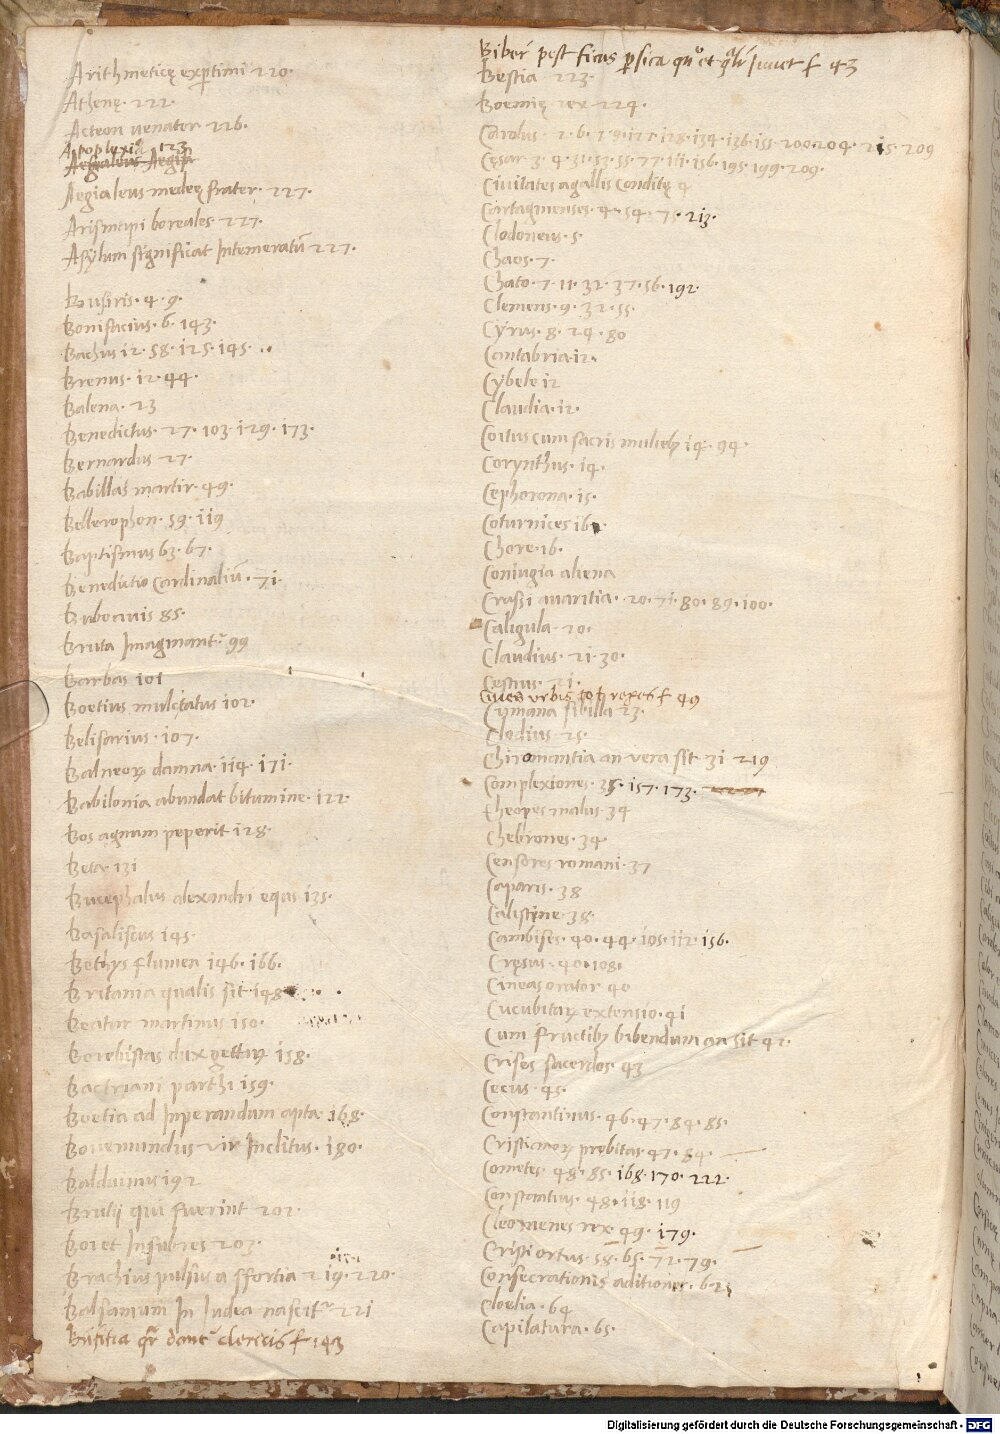 Arithmeticę exptimi 220.
Athenę. 222.
Acteon venator 226.
Apoplexia 123
Aegialeus Aegip
Aegialeus medeę frater. 227.
Arismapi boreales 227.
Asylum significat Intemeratū 227.
Busiris. 4. 9.
Bonifacius. 6. 143.
Bachus 12. 58. 125. 145.
Brenus. 12. 44.
Balena. 23
Benedictus. 27. 103. 129. 173.
Bernardus 27.
Babillas martir. 49.
Bellerophon. 59. 119
Baptismus 63. 67.
Benedictio Cardinaliū. 71.
Bubonis 85.
Bruta Imaginant. 99
Barbas 101
Boetius mulctatus 102.
Belisarius. 107.
Balneoꝝ damna. 114. 171.
Babilonia abundat bitumine. 122
Bos agnum peperit 128.
Beta. 131
Bucephalus alexandri equs 135.
Basaliscus 145.
Bethys flumen 146. 166.
Britania qualis sit. 148
Beatur martinus 150.
Borebistas dux gettaꝝ 158.
Bactriani parthi 159.
Boetia ad Inperandum apta. 168.
Bouemundus vir Inclitus. 180.
Balduinus 192
Brutij qui fuerint 202.
Boi et Insubres 203.
Brachius pulsus a sfortia 219. 220.
Balsamum In Iudea nascit 221
f. 143
Biber post ficus psica et f 43
Bestia 223.
Boemię rex 224.
Carolus. 2. 6. 7. 9. 121. 128. 134. 136. 155. 200. 204. 215. 209
Cęsar. 3. 4. 31. 53. 55. 77. 111. 156. 195. 199. 209.
Civitates a gallis conditę 4
Cartaginenses. 4. 54. 75. 213.
Clodoneus. 5.
Chaos. 7.
Chato. 7. 11. 32. 37. 56. 192.
Clemens. 9. 32. 55.
Cyrus. 8. 24. 80
Cantabria. 12.
Cybele 12
Claudia. 12.
Coitus cum sacris mulieb 14. 94.
Corynthus. 14.
Cephorona. 15.
Coturnices 16.
Chore. 16.
Coniugia aliena
Crassi avaritia. 20. 71. 80. 89. 100.
Caligula. 20.
Claudius. 21. 30.
Cestius. 21.
Cives urbis f 49
Cymana sibilla 23.
Clodius. 25.
Chiromantia an vera sit. 31 219
Complexiones. 35. 157. 173.
Cheopes malus 34
Chebrones. 34
Censores romani. 37
Caparis. 38
Calistine. 38.
Cambises. 40. 44. 105. 112. 156.
Cręsus. 40. 108.
Cineas orator 40
Cucubitaꝝ extensio. 41
Cum fructibꝫ bibendum an sit 42.
Crises sacerdos. 43
Cecus. 45.
Constantinus. 46. 47. 84. 85.
Cristianoꝝ probitas. 47. 54.
Cometes. 48. 85. 168. 170. 222.
Constantius. 48. 118. 119
Cleomenes rex. 49. 179.
Cristi ortus. 58. 65. 72. 79.
Consecrationis aditiones. 62
Cloelia. 64
Capilatura. 65.
Digitalisierung gefördert durch die Deutsche Forschungsgemeinschaft - DFG